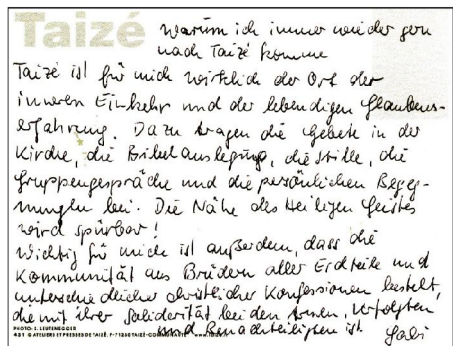 Taizé
Warum ich immer wieder gern
nach Taizé komme
Taizé ist für mich wirklich der Ort der
inneren Einkehr und der lebendigen Glaubens-
erfahrung. Dazu tragen die Gebete in der
Kirche, die Bibelauslegung, die Stille, die
Gruppengespräche und die persönlichen Begeg-
nungen bei. Die Nähe des Heiligen Geistes
wird spürbar!
Wichtig für mich ist außerdem, dass die
Kommunität aus Brüdern aller Erdteile und
unterschiedlicher christlicher Konfessionen besteht,
die mit ihrer Solidarität bei den Armen, Verfolgten
und Benachteiligten ist. Gabi
PHOTO: S. LEUTENEGGER
ATELIERS ET PRESSES DE TAIZÉ, F-71250 TAIZÉ-COMMUNAUTÉ